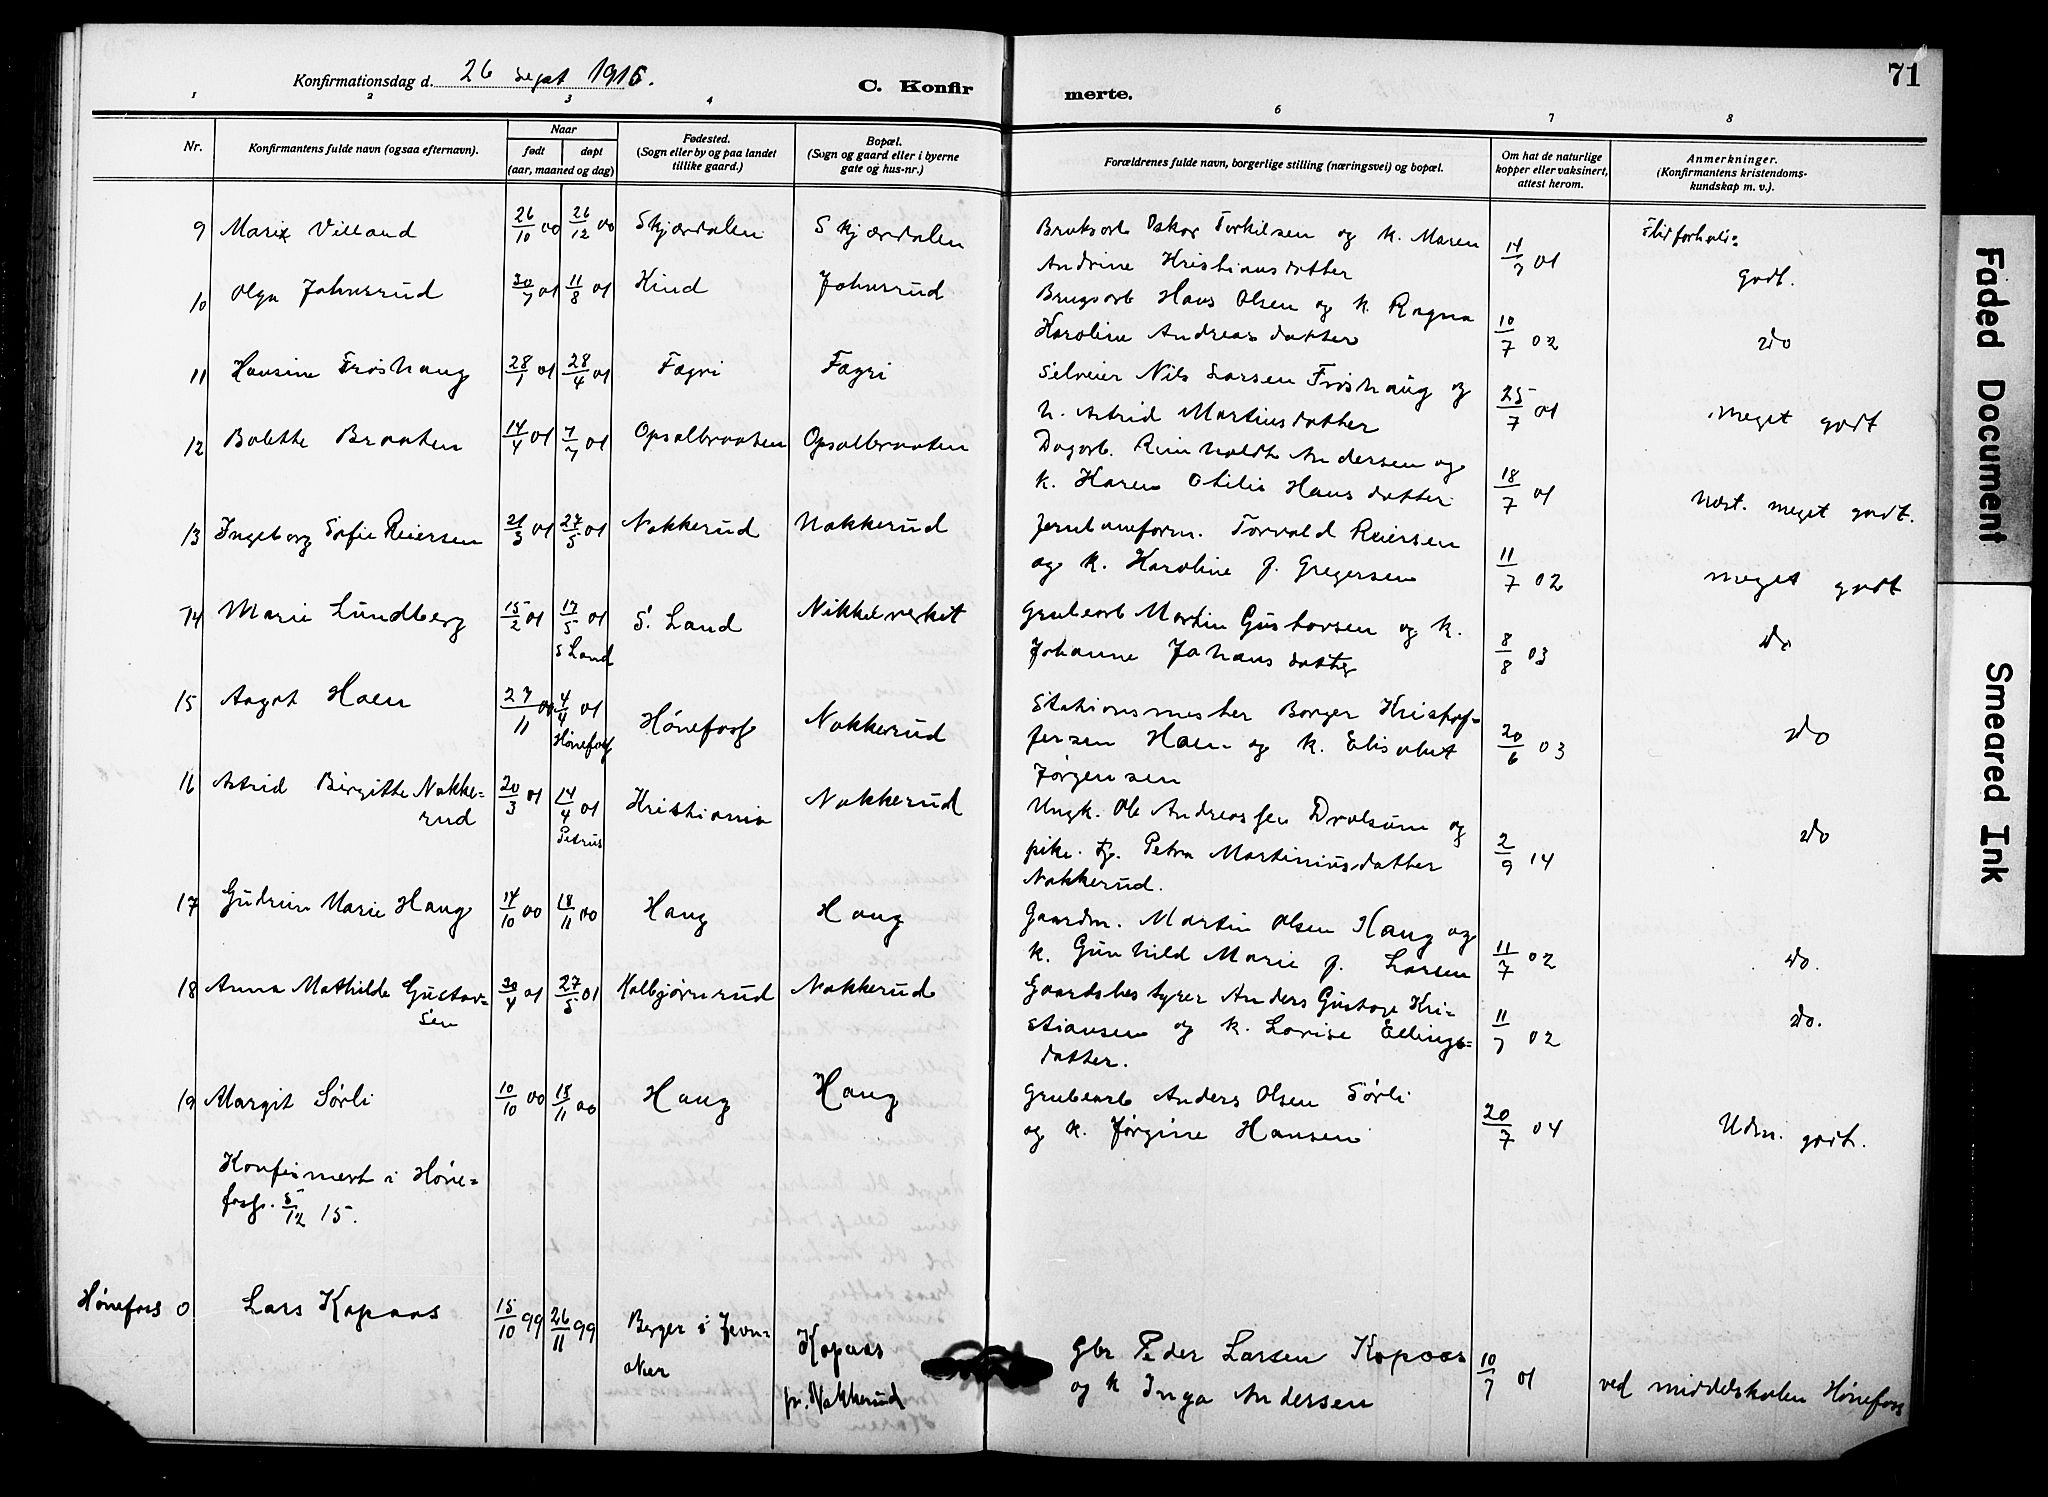 71
Konfirmationsdag d. 26 sept 1915.
C. Konfir
merte.
1 2 3 4 5 6 7 8
Nr.
Konfirmantens fulde navn (ogsaa efternavn).
Naar
født
døpt
(aar, maaned og dag)
Fødested.
(Sogn eller by og paa landet
tillike gaard.)
Bopæl.
(Sogn og gaard eller i byerne
gate og hus-nr.)
Forældrenes fulde navn, borgerlige stilling (næringsvei) og bopæl.
Om hat de naturlige
kopper eller vaksinert,
attest herom.
Anmerkninger.
(Konfirmantens kristendoms-
kundskap m. v.).
9 Marie Villand 26/10 00 26/12 00 Skjærdalen Skjærdalen Bruksarb Oskar Torkilsen og k. Maren
Andrine Kristiansdatter 14/7 01 godt.
10 Olga Johnsrud 30/7 01 11/8 01 Kind Johnsrud Brugsarb Hans Olsen og k. Ragna
Karoline Andreasdatter 10/7 02 do
11 Hansine Frøshaug 28/1 01 28/4 01 Fagri Fagri Selveier Nils Larsen Frøshaug og
h. Astrid Martinsdatter 25/7 01 meget godt
12 Bolette Braaten 14/4 01 7/7 01 Opsalbraaten Opsalbraaten Dagarb. Reinholdt Andersen og
k. Karen Otilie Hansdatter 18/7 01 næst. meget godt.
13 Ingeborg Sofie Reiersen 21/3 01 27/5 01 Nakkerud Nakkerud Jernbaneform. Torvald Reiersen
og k. Karoline f. Gregersen 11/7 02 meget godt
14 Marie Lundberg 15/2 01 17/5 01 S. Land Nikkelverket Grubearb Martin Gustavsen og k.
S Land Johanne Johansdatter 8/8 03 do
15 Aagot Haen 23/11 00 4/4 01 Hønefoss Nakkerud Stationsmester Borger Kristof=
Hønefoss fersen Haen og k. Elisabet 20/6 03 do
Jørgensen
16 Astrid Birgitte Nakke= 20/3 01 14/4 01 Kristiania Nakkerud Ungk. Ole Andreassen Dralsum og
rud Petrus pike. Petra Martiniusdatter 2/9 14 do
Nakkerud.
17 Gudrun Marie Haug 14/10 00 18/11 00 Haug Haug Gaardm. Martin Olsen Haug og
k. Gunhild Marie f. Larsen 11/7 02 do.
18 Anna Mathilde Gustav= 30/4 01 27/5 01 Halbjørnrud Nakkerud Gaardsbestyrer Anders Gustav Kri=
sen stiansen og k. Lovise Ellings= 11/7 02 do.
datter.
19 Margit Sørli 10/10 00 18/11 00 Haug Haug Grubearb Anders Olsen Sørli
og k. Jørgine Hansen 20/7 04 Udm. godt.
Konfirmert i Høne=
foss. 5/12 15.
Hønefoss 0 Lars Kopaas 15/10 99 26/11 99 Berger i Jevn= Kopaas Gbr Peder Larsen Kopaas
aker pr. Nakkerud og k Inga Andersen 10/7 01 ved middelskolen Hønefoss
Faded Document
Smeared Ink